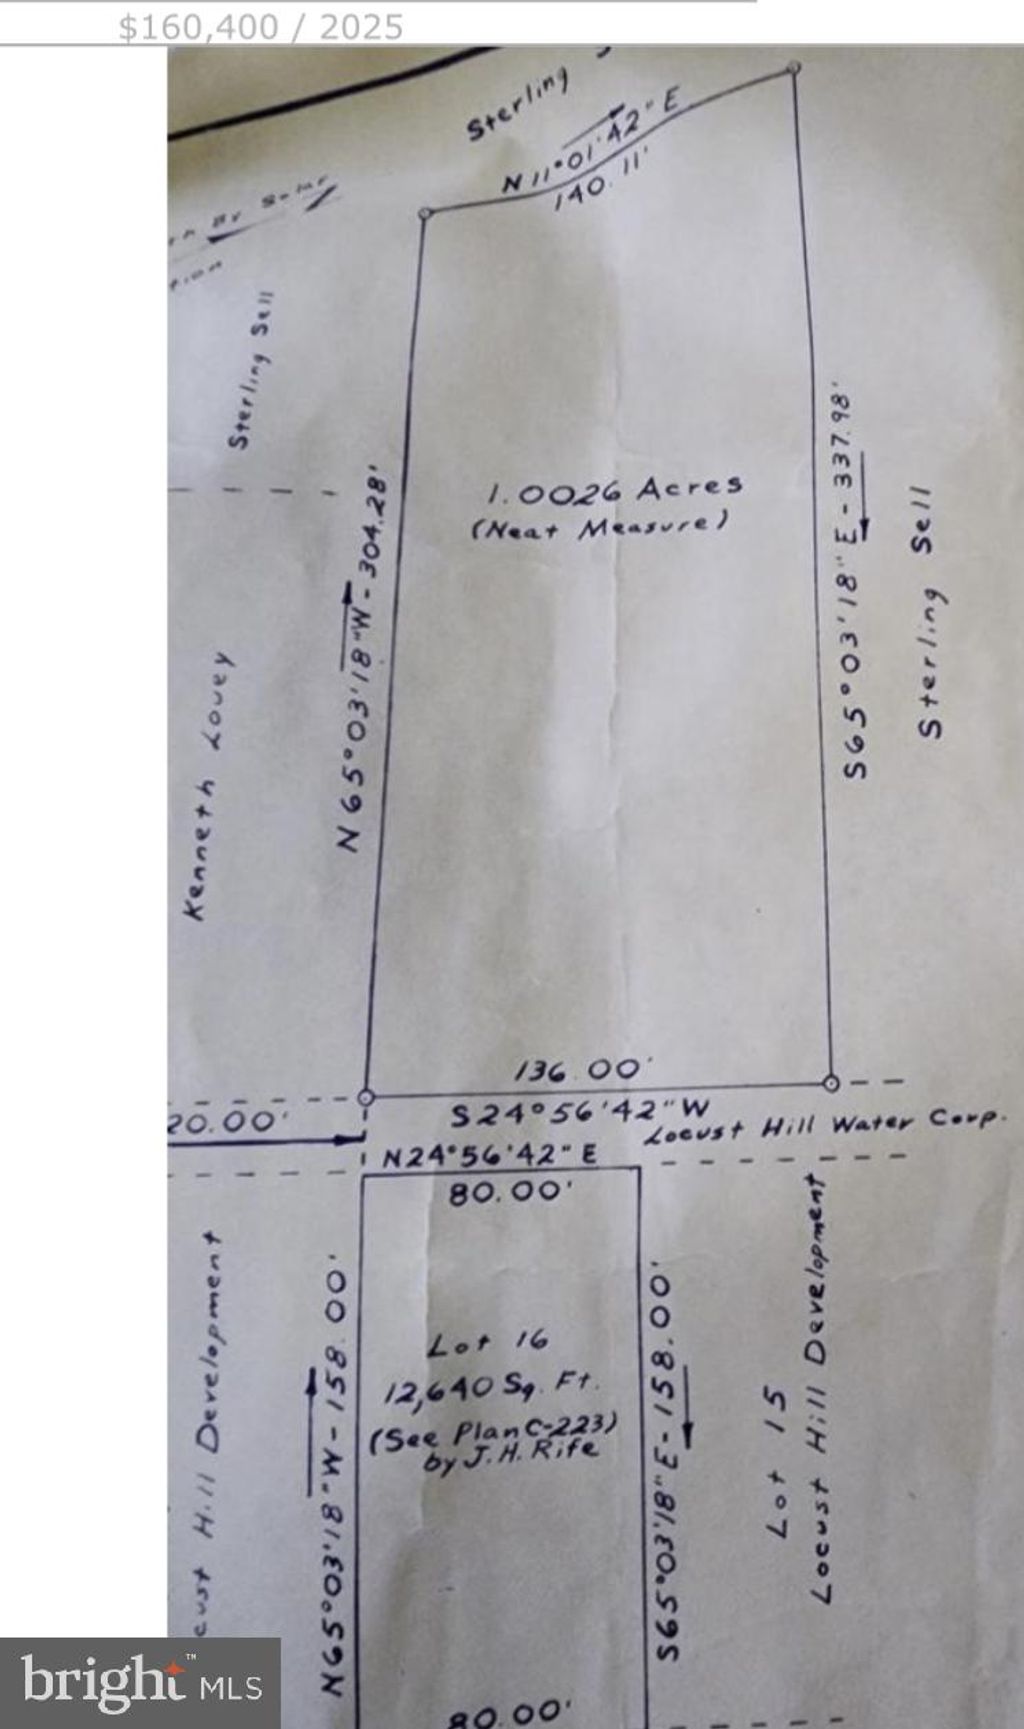 $160,400 / 2025
Sterling
N 11°01'42" E
140.11'
Sterling Sell
1.0026 Acres
(Neat Measure)
N 65°03'18" W - 304.28'
S65°03'18" E - 337.98'
Sterling Sell
Kenneth Lovey
136.00'
20.00'
S24°56'42" W
Locust Hill Water Corp.
N24°56'42" E
80.00'
Lot 16
12,640 Sq. Ft.
(See Plan C-223)
by J.H. Rife
N65°03'18" W - 158.00'
S65°03'18" E - 158.00'
Hill Development
Lot 15
Locust Hill Development
80.00'
bright™ MLS